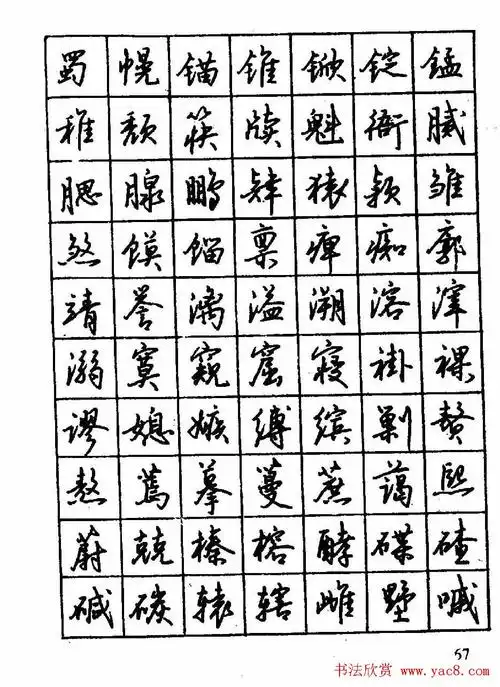 蜀幌锚锥锨锭锰
稚颓筷牍魁衙腻
腮腺鹏肄猿颖雏
煞馍馏禀痹痴廓
靖誊漓溢溯溶滓
溺寞窥窟寝褂裸
谬媳嫉缚缤剿赘
熬蔫摹蔓蔗蔼熙
蔚兢榛榕酵碟碴
碱碳辕辖雌墅嘁
57
书法欣赏
www.yac8.com